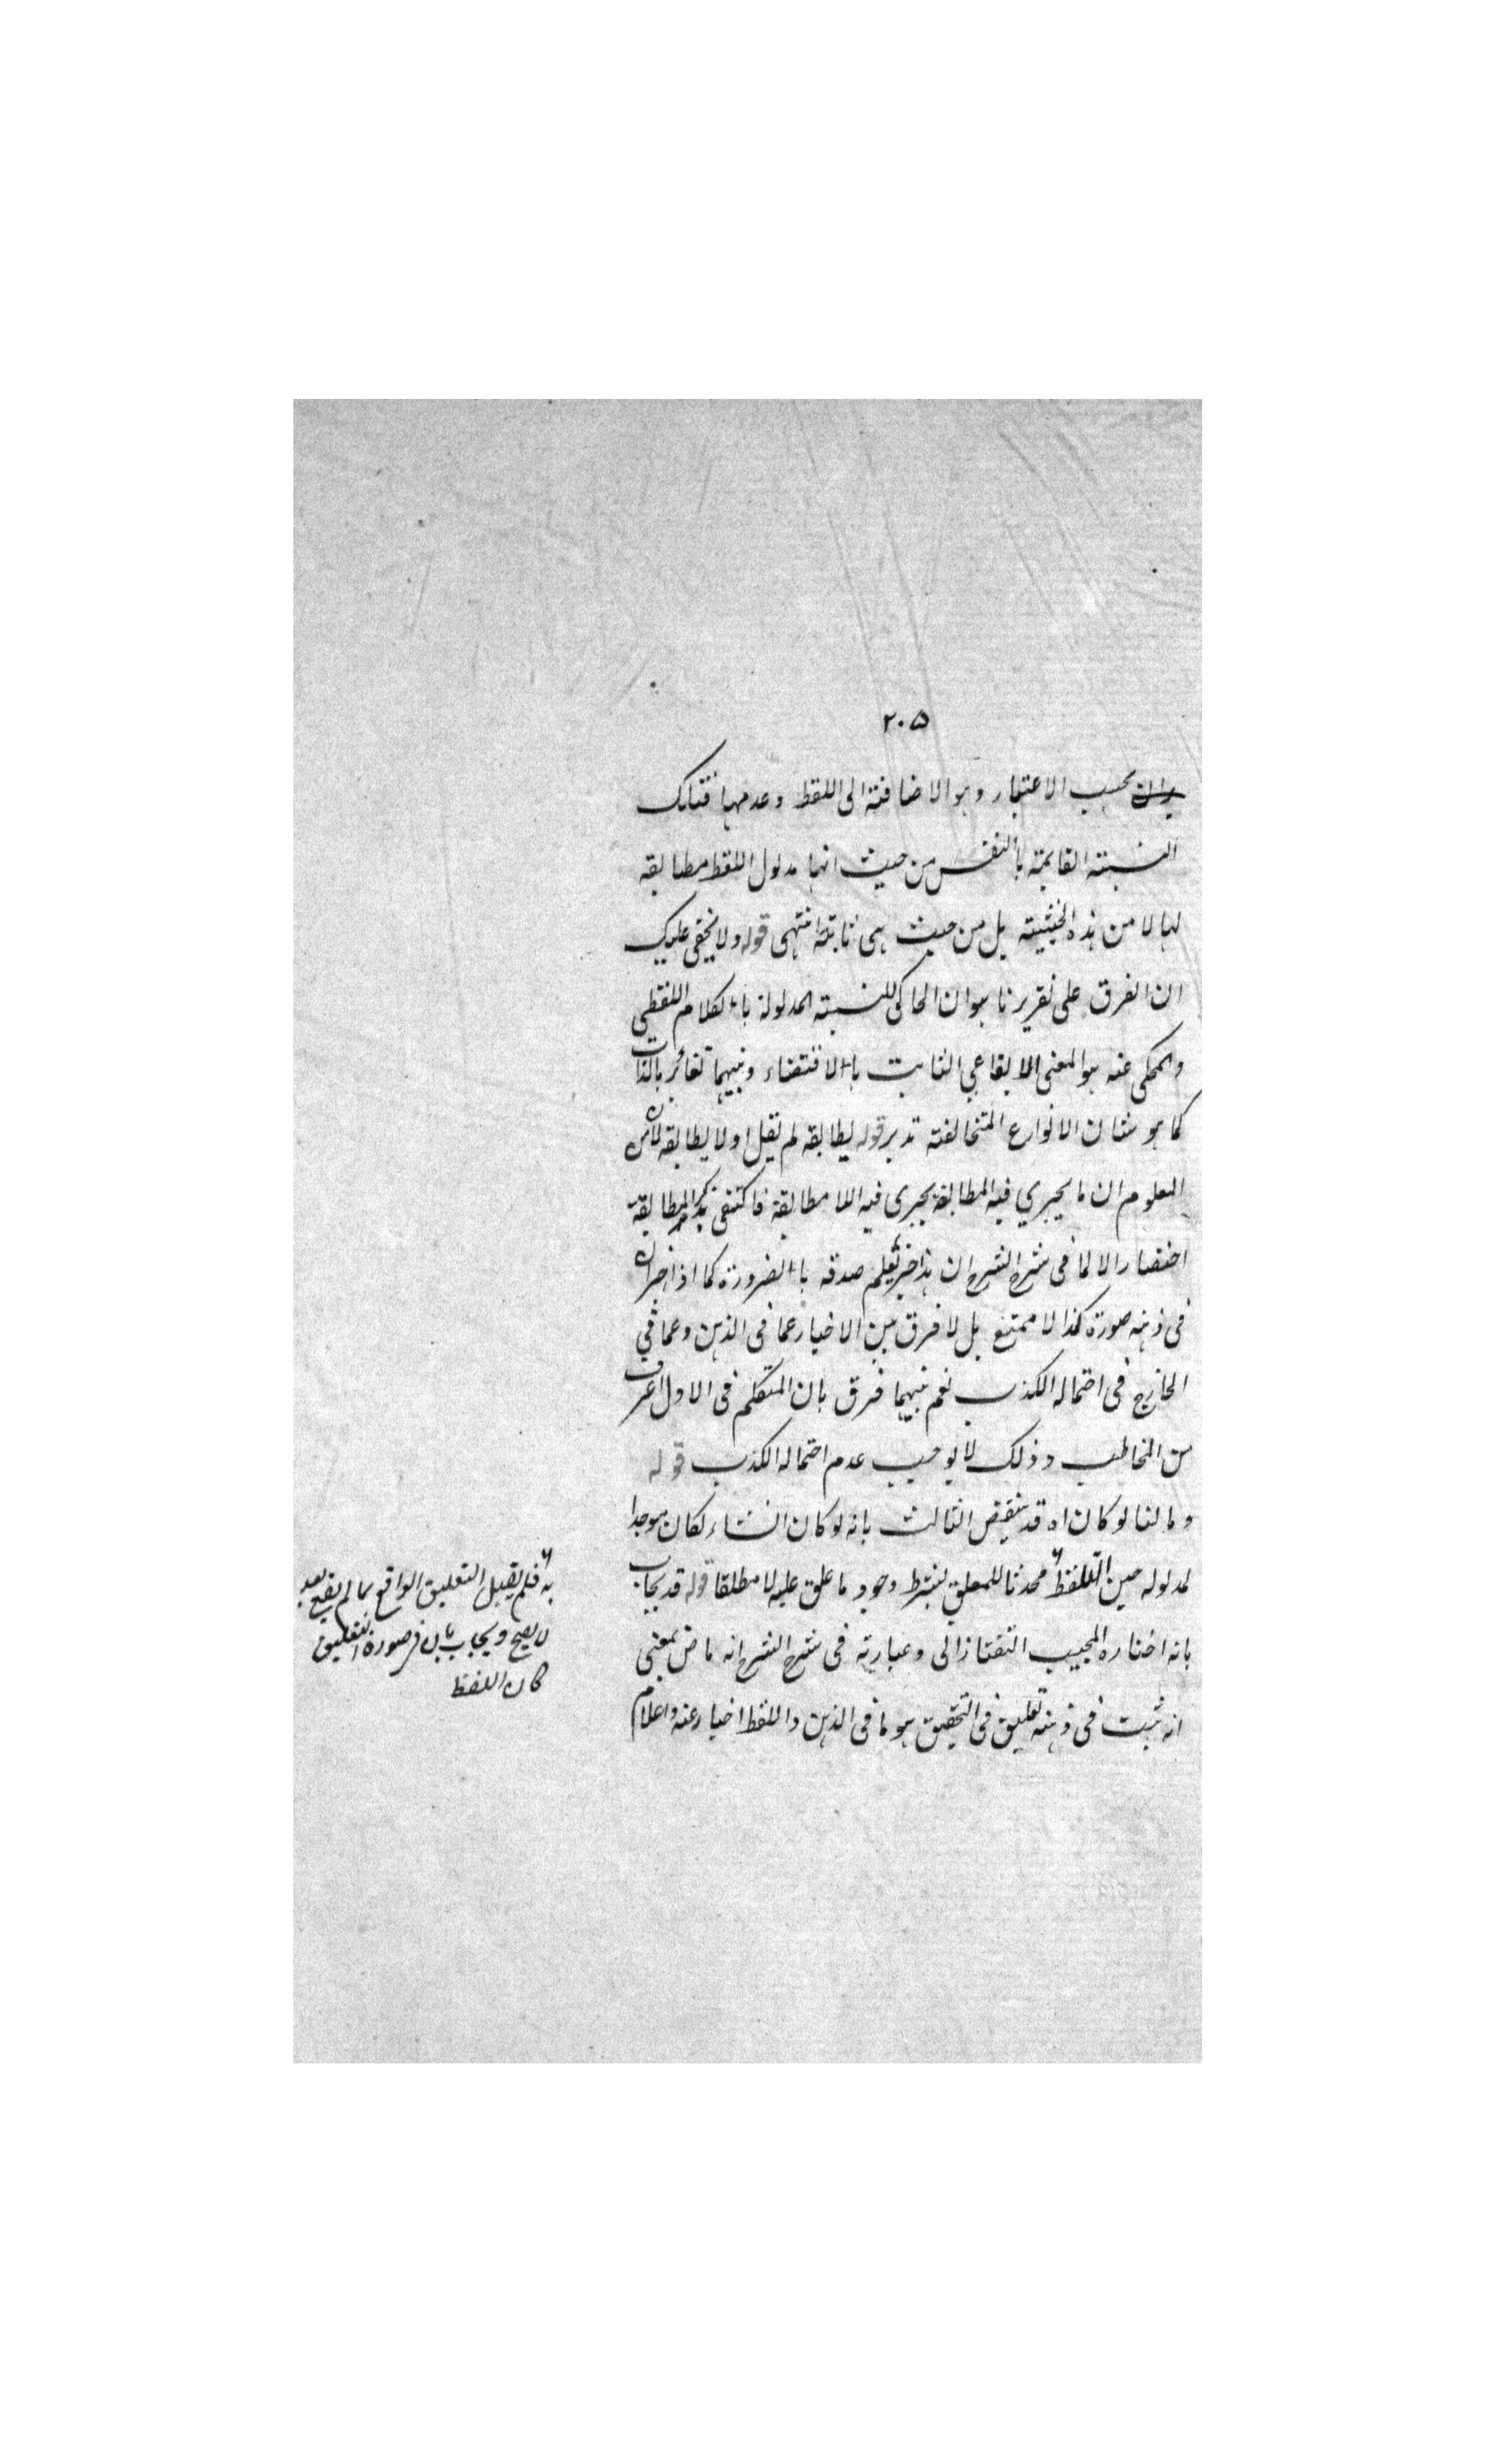 ٢٠٥
بحسب الاعتبار وهو الاضافة الى اللفظ وعدمها فتلك
النسبته القايمة بالنفس من حيث انها مدلول اللفظ مطابقه
لها لا من هذه الحيثيته بل من حيث هى ثابتة انتهى قوله ولا يخفى عليك
ان الفرق على تقريرنا هو ان الحاكى للنسبته المدلولة بالكلام اللفظى
والمحكى عنه هو المعنى الايقاعي الثابت بالاقتضاء وبينهما تغائر بالذات
كما هو شان الانواع المتخالفته تدبر قوله ليطابقه لم يقل او لا يطابقه لان من
المعلوم ان ما يجري فيه المطابقة يجرى فيه اللا مطابقة فاكتفى بذكر المطابقة
اختصارا لا لما فى شرح الشرح ان هذا خبر يعلم صدقه بالضرورة كما اذا اخبر ان
فى ذهنه صورة كذا لا ممتنع بل لا فرق بين الاخبار عما فى الذهن وعما في
الخارج فى احتماله الكذب نعم بينهما فرق بان المتكلم فى الاول اعرف
من المخاطب وذلك لا يوجب عدم احتماله الكذب قوله
وما لنا لو كان اه قد ينقض الثالث بانه لو كان انشاء لكان موجدا
لمدلوله حين التلفظ محدثا للمعلق بشرط وجود ما علق عليه لا مطلقا قوله قد يجاب
بانه اختاره المجيب التفتازانى وعبارته فى شرح الشرح انه ماض بمعنى
انه ثبت فى ذهنه تعليق فى التحقيق هو ما فى الذهن واللفظ اخبار عنه واعلام
به فلم يقبل التعليق الواقع بما لم يقع بعد
لا يصح ويجاب بان فى صورة التعليق
كان اللفظ